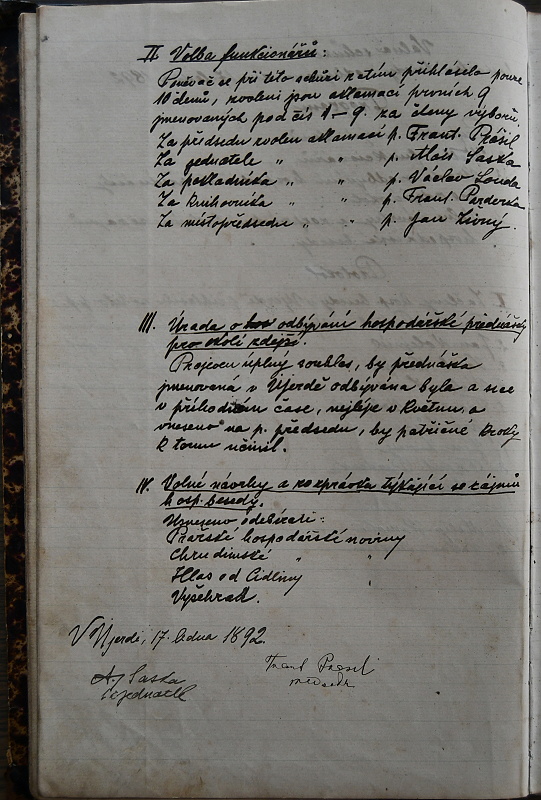 II Volba funkcionářů:
Poněvač se při této schůzi zatím přihlásilo pouze
10 členů, zvoleni jsou aklamací prvních 9
jmenovaných pod čís 1–9. za členy výboru.
Za předsedu zvolen aklamací p. Frant. Přesil
Za jednatele „ „ p. Alois Saska
Za pokladníka „ „ p. Václav Louda
Za knihovníka „ „ p. Frant. Parderka
Za místopředsedu „ „ p. Jan Živný.
III. Úrada o odbývání hospodářské přednášky
pro okolí zdejší.
Projeven úplný souhlas, by přednáška
jmenovaná v Újezdě odbývána byla a sice
v příhodném čase, nejlépe v květnu, a
vneseno na p. předsedu, by patřičné kroky
k tomu učinil.
IV. Volné návrhy a rozprávka týkající se zájmů
hosp. besedy.
Usneseno odebírati:
Pražské hospodářské noviny
Chrudimské „ „
Hlas od Cidliny
Vyšehrad.
V Újezdě, 17. ledna 1892.
A. Saska
jednatel
Frant Přesil
předseda